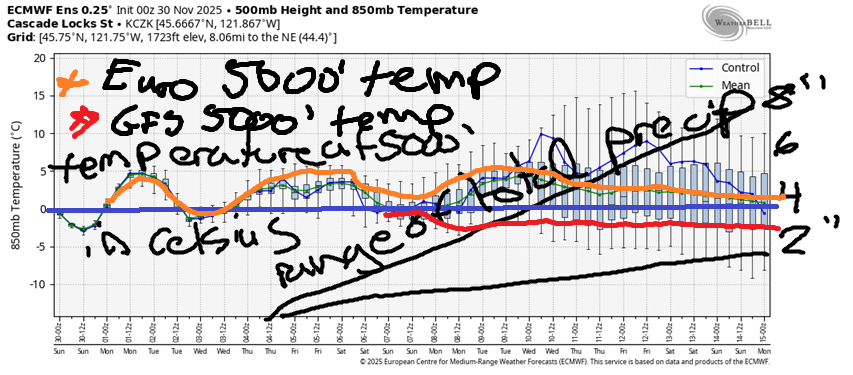 ECMWF Ens 0.25° Init 00z 30 Nov 2025 • 500mb Height and 850mb Temperature
Cascade Locks St • KCZK [45.6667°N, 121.867°W]
Grid: [45.75°N, 121.75°W, 1723ft elev, 8.06mi to the NE (44.4)°]
WEATHERBELL
Control
Mean
Euro 5000' temp
GFS 5000' temp
temperature at 5000'
in Celsius
range of total precip
8"
6
4
2"
850mb Temperature (°C)
20
15
10
5
0
-5
-10
30-00z 30-12z 01-00z 01-12z 02-00z 02-12z 03-00z 03-12z 04-00z 04-12z 05-00z 05-12z 06-00z 06-12z 07-00z 07-12z 08-00z 08-12z 09-00z 09-12z 10-00z 10-12z 11-00z 11-12z 12-00z 12-12z 13-00z 13-12z 14-00z 14-12z 15-00z
Sun Sun Mon Mon Tue Tue Wed Wed Thu Thu Fri Fri Sat Sat Sun Sun Mon Mon Tue Tue Wed Wed Thu Thu Fri Fri Sat Sat Sun Sun Mon
© 2025 European Centre for Medium-Range Weather Forecasts (ECMWF). This service is based on data and products of the ECMWF.